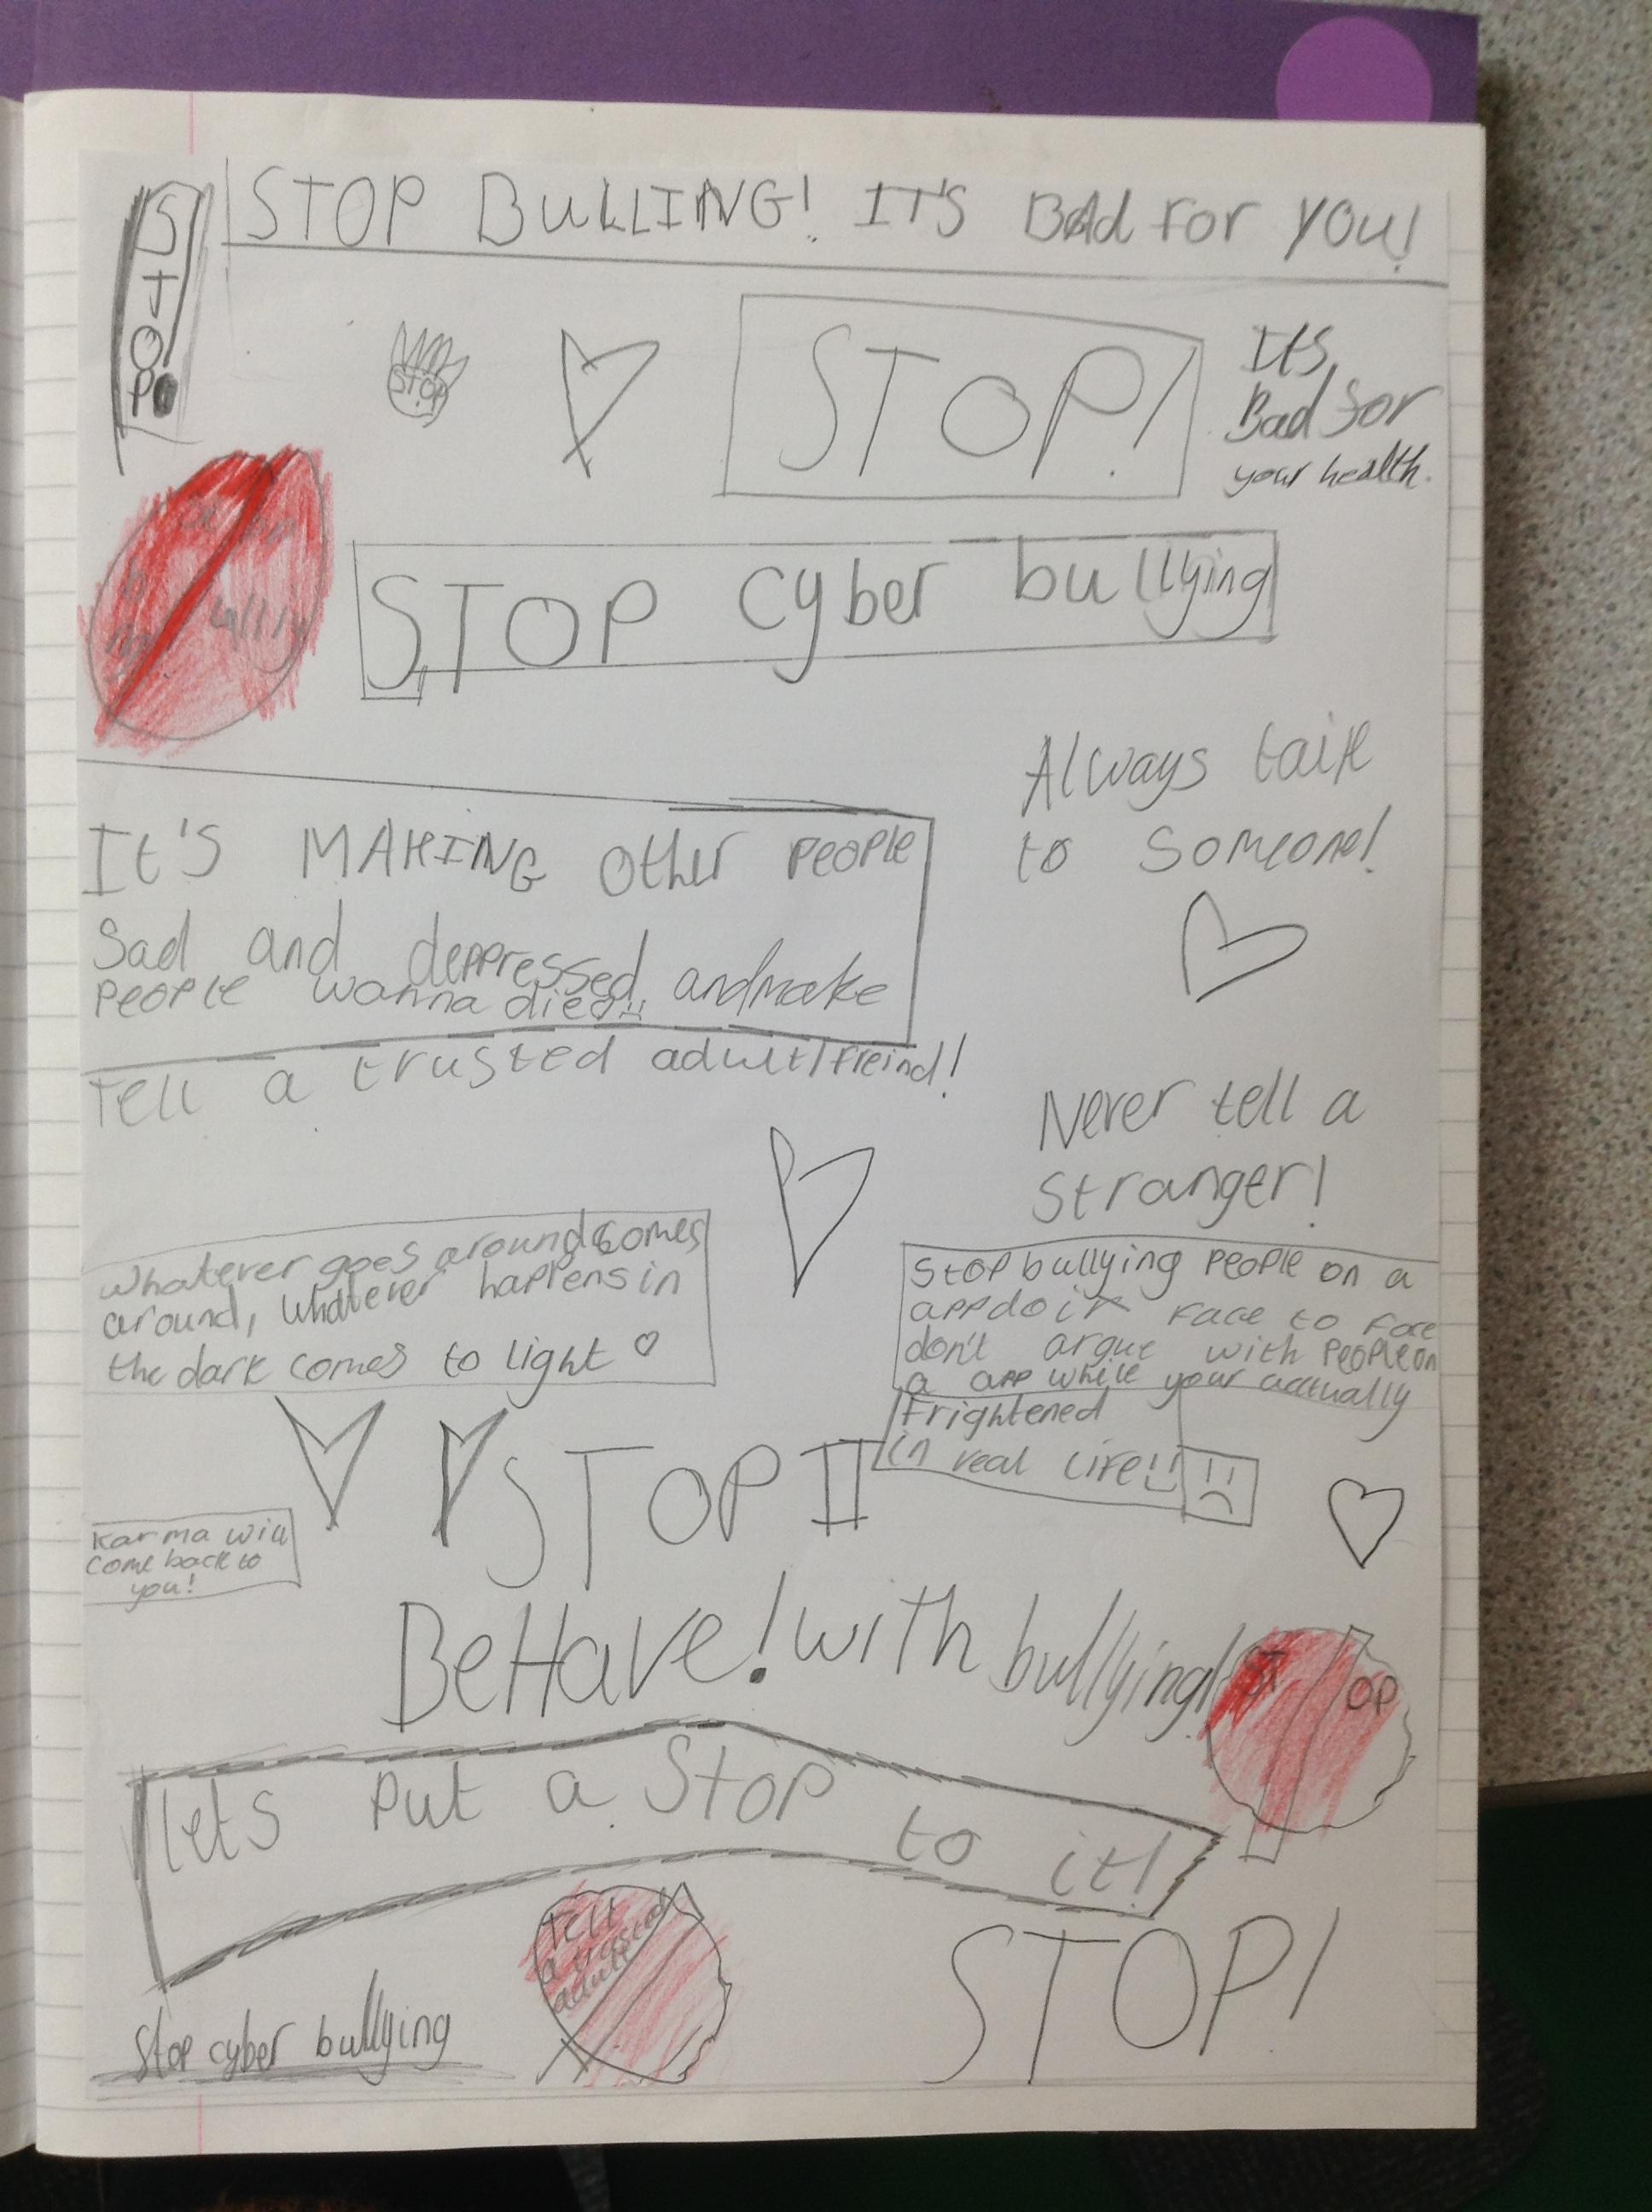 STOP
STOP BULLING! IT'S BAd For YOU!
STOP
STOP!
Its
Bad for
your health.
STOP cyber bullying
Always talk
to someone!
It's MAKING other people
Sad and deppressed andmake
people wanna died
Tell a trusted adult/freind!
Never tell a
stranger!
Whatever goes around comes
around, whatever happens in
the dark comes to light
Stop bullying people on a
app do it face to face
don't argue with people on
a app while your actually
frightened
in real life!!
STOP
Karma will
come back to
you!
BeHave! with bullying!
ST OP
lets put a stop
to it!
Tell
a trusted
adult
Stop cyber bullying
STOP!